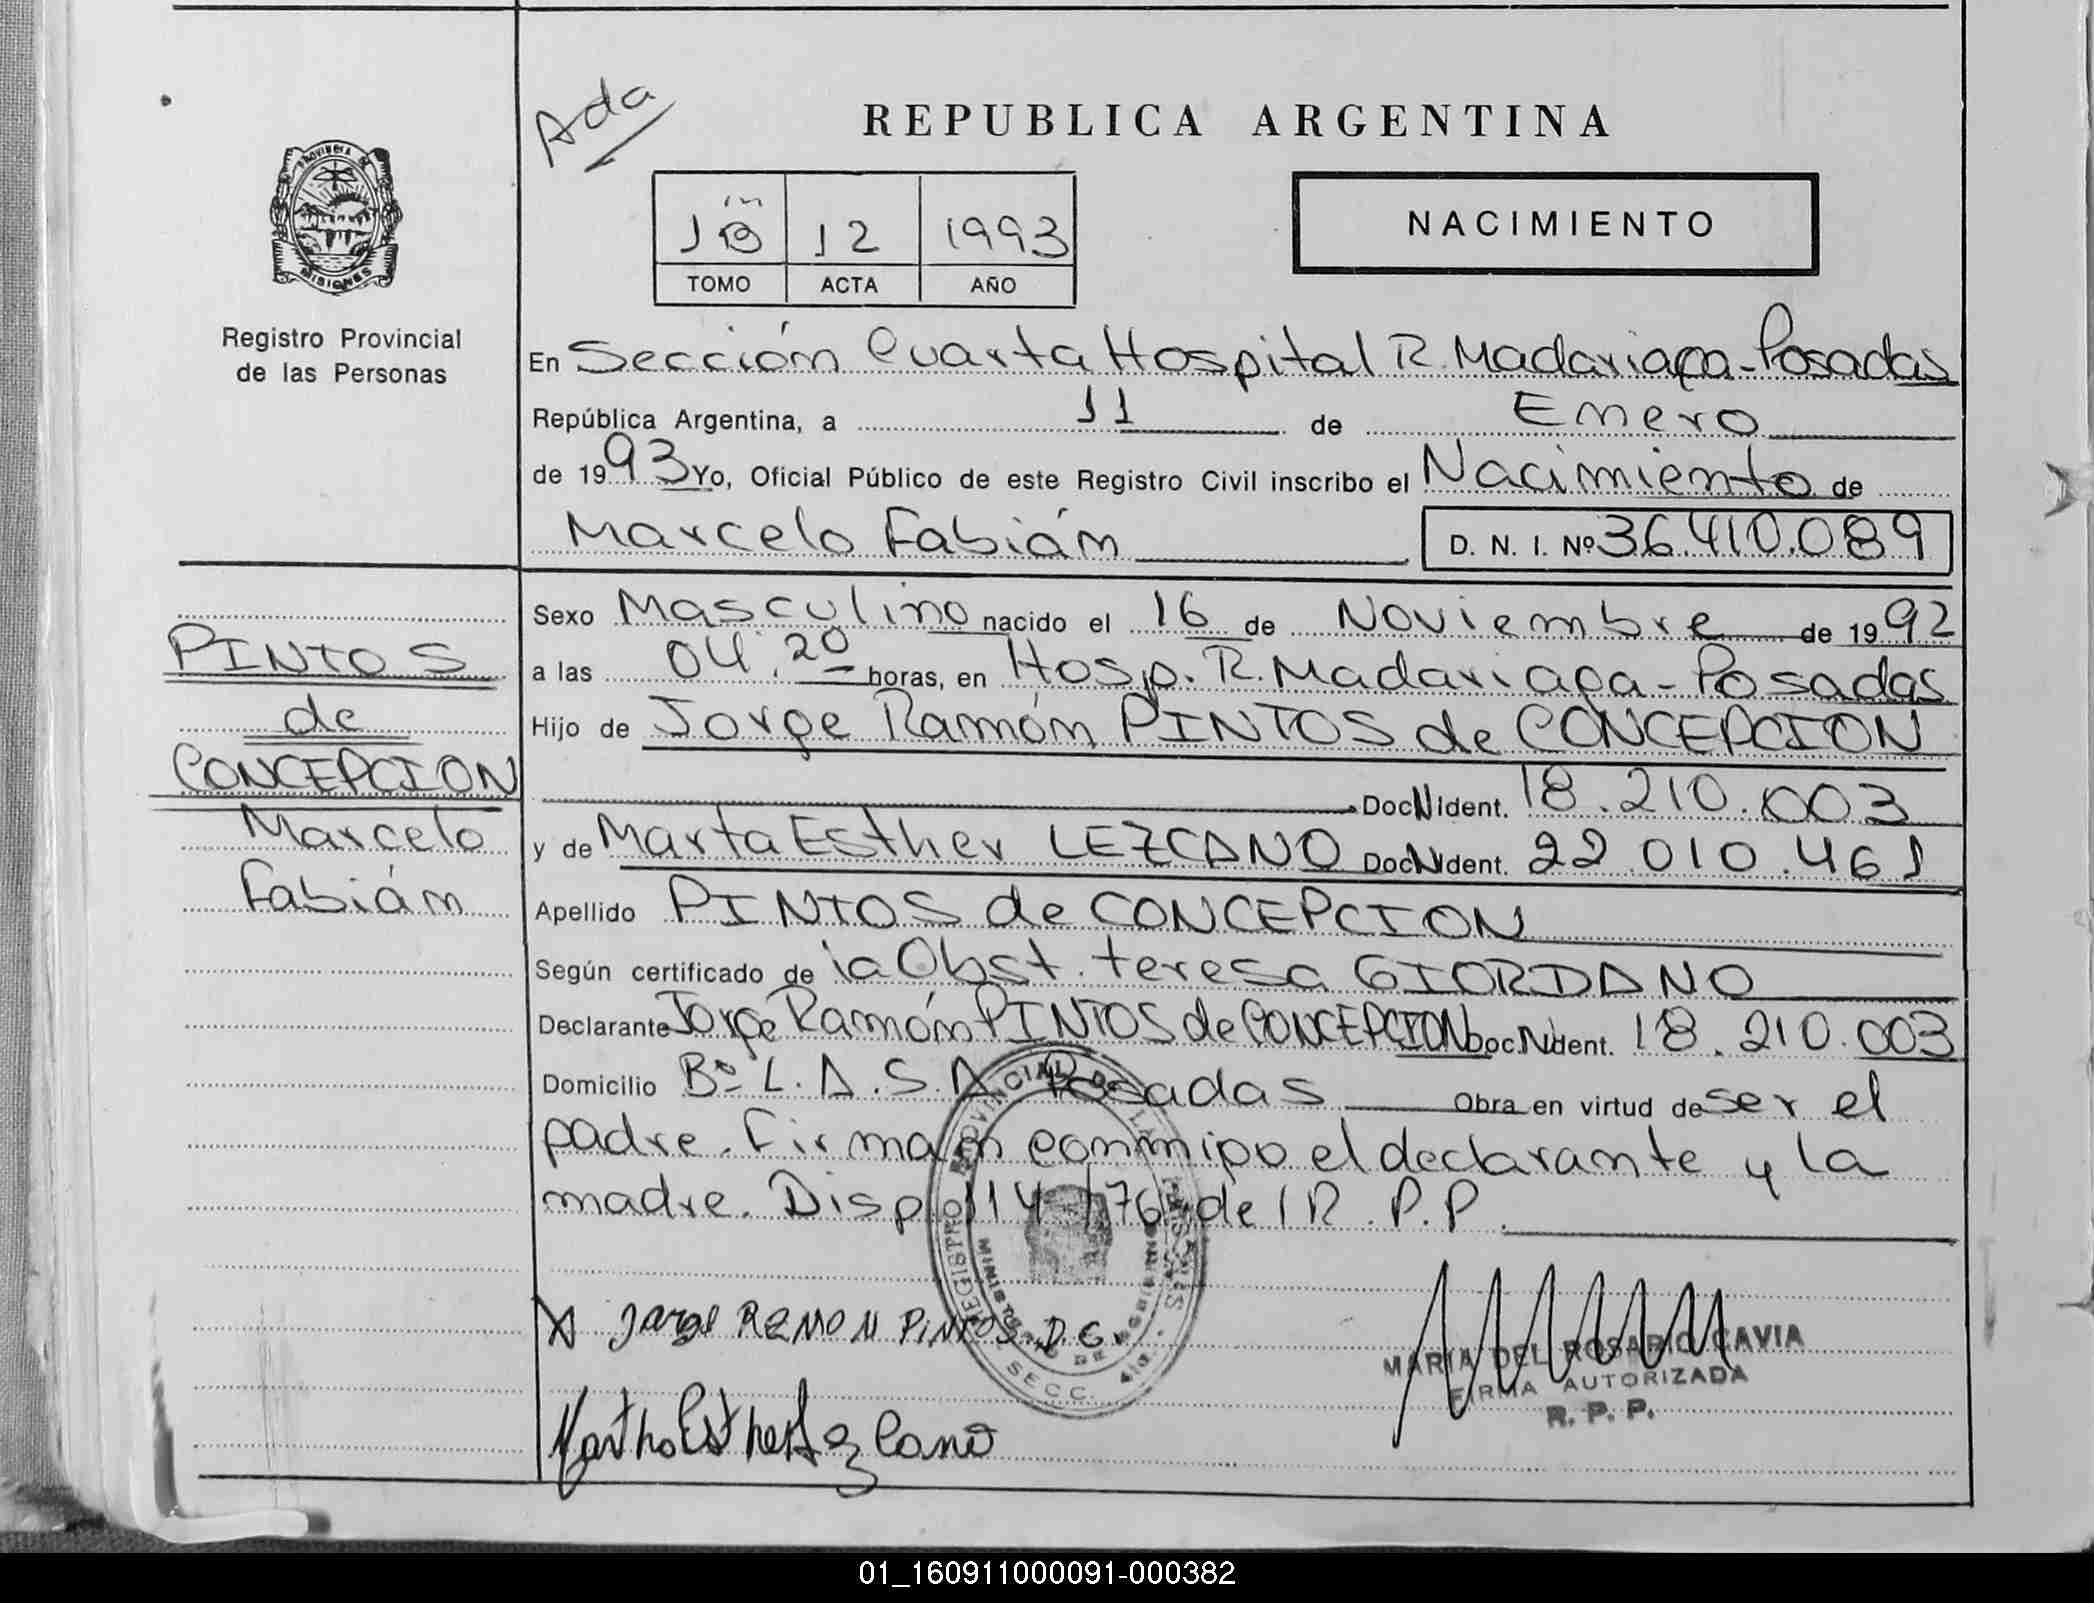 Ada
REPUBLICA ARGENTINA
NACIMIENTO
12 1993
TOMO ACTA AÑO
PROVINCIA DE
MISIONES
Registro Provincial
de las Personas
En Sección Cuarta Hospital R. Madariaga - Posadas
República Argentina, a 11 de Enero
de 1993 Yo, Oficial Público de este Registro Civil inscribo el Nacimiento de
Marcelo Fabián D. N. I. Nº 36.410.089
Sexo Masculino nacido el 16 de Noviembre de 1992
a las 04.20 horas, en Hosp. R. Madariaga - Posadas
Hijo de Jorge Ramón PINTOS de CONCEPCION
Doc N Ident. 18.210.003
y de Marta Esther LEZCANO Doc N Ident. 22 010.461
Apellido PINTOS de CONCEPCION
Según certificado de la Obst. teresa GIORDANO
Declarante Jorge Ramón PINTOS de CONCEPCION Doc N Ident. 18.210.003
Domicilio Bº L.A.S.A Posadas Obra en virtud de ser el
padre. Firman conmigo el declarante y la
madre. Disp 114/76 de l R.P.P.
PINTOS
de
CONCEPCION
Marcelo
Fabián
X Jorge RAMON PINTOS D C.
Martha Esther Lezcano
REGISTRO PROVINCIAL DE LAS PERSONAS
SECC. 4ta.
MARIA DEL ROSARIO CAVIA
FIRMA AUTORIZADA
R. P. P.
01_160911000091-000382